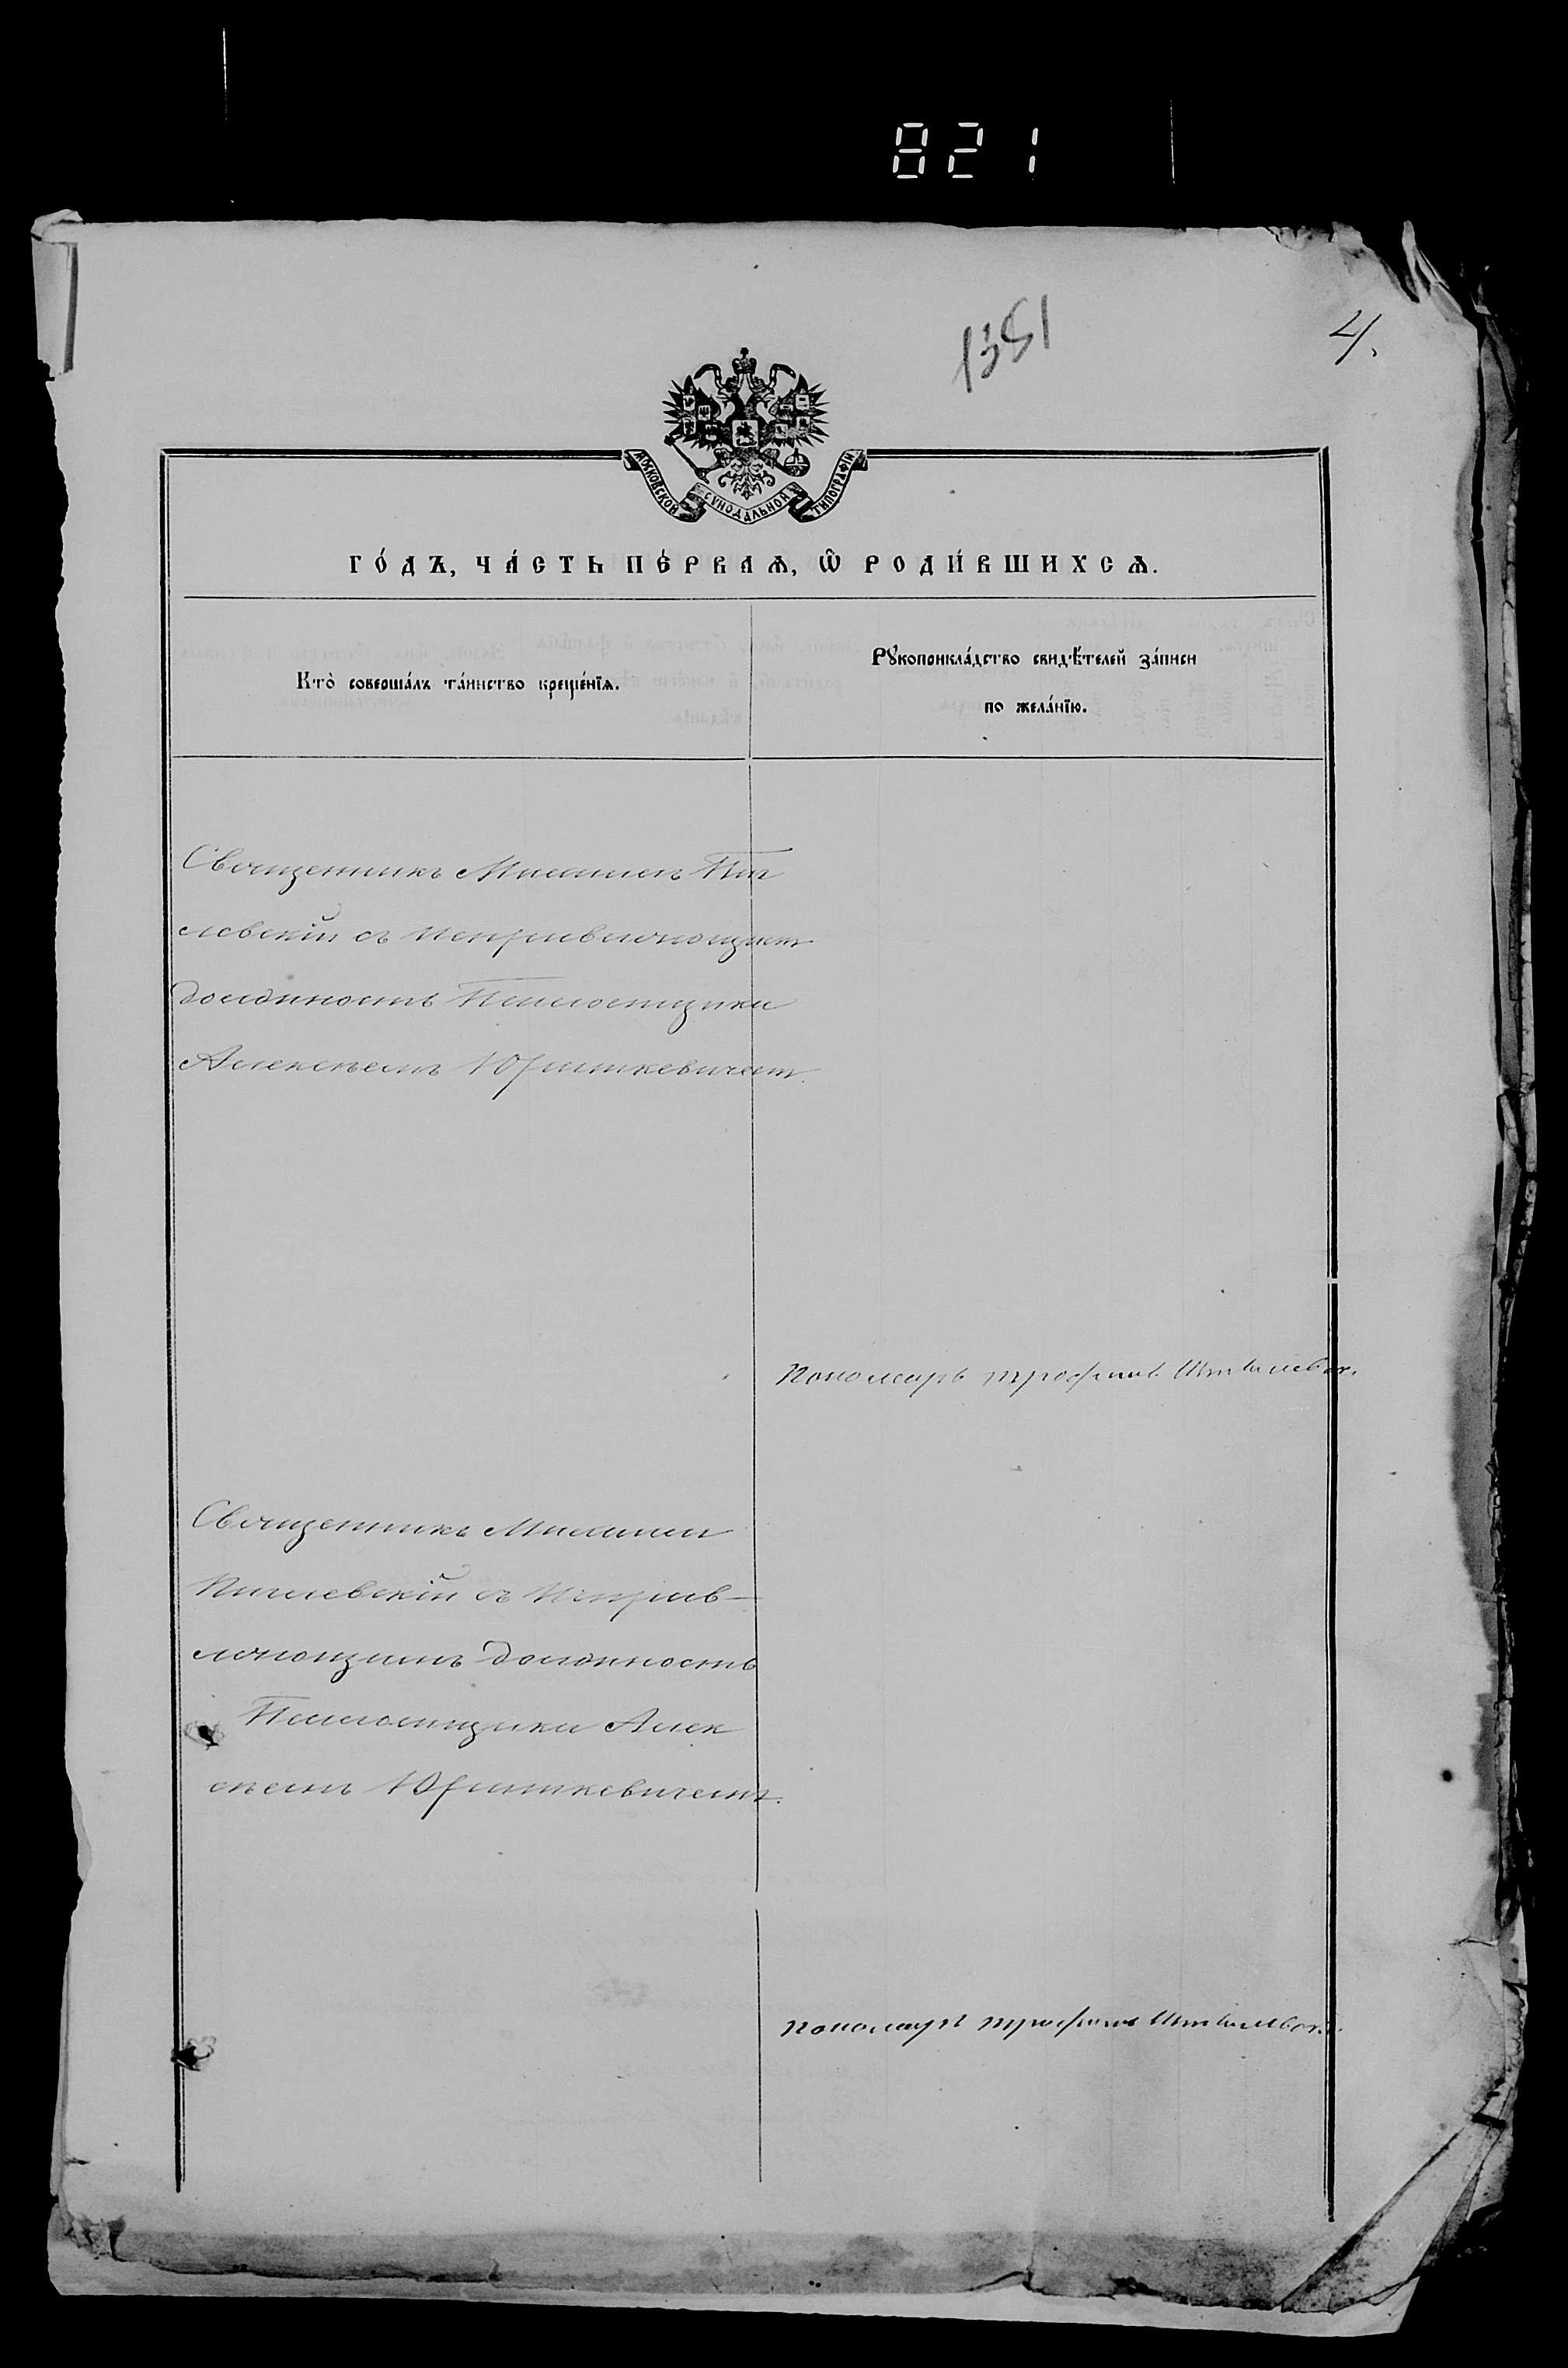 821
1351
4.
МОСКОВСКОЙ СѴНОДАЛЬНОЙ ТИПОГРАФІИ
ГО́ДЪ, ЧА́СТЬ ПЕ́РВАѦ, Ѡ҆ РОДИ́ВШИХСѦ.
Кто̀ соверша́лъ та́инство креще́нїѧ.
Рꙋкоприкла́дство свидѣ́телей за́писи
по жела́нїю.
Священникъ
левскій съ исправляющимъ
должность Псаломщика
Алексѣемъ Юрашкевичемъ.
Пономарь Трофимъ
Священникъ
Пигулевскій съ Исправ-
ляющимъ должность
Псаломщика Алек
сѣемъ Юрашкевичемъ.
Пономарь Трофимъ